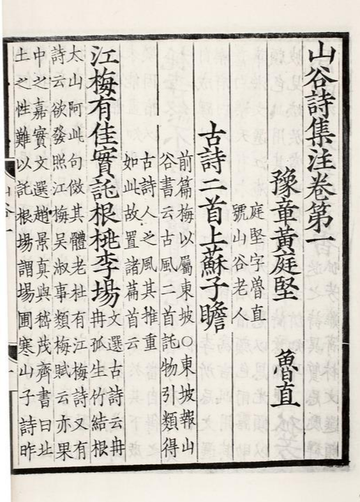 山谷詩集注卷第一
豫章黃庭堅　魯直
庭堅字魯直
號山谷老人
古詩二首上蘇子瞻
前篇梅以屬東坡○東坡報山
谷書云古風二首託物引類得
古詩人之風其推重
如此故置諸篇首云
江梅有佳實託根桃李場
文選古詩云冉
冉孤生竹結根
太山阿此句倣其體老杜有江梅詩又有
詩云欲發照江梅吳淑事類梅賦云亦果
中之嘉實文選趙景真與嵇茂齊書曰北
土之性難以託根場謂場圃寒山子詩昨
山谷一